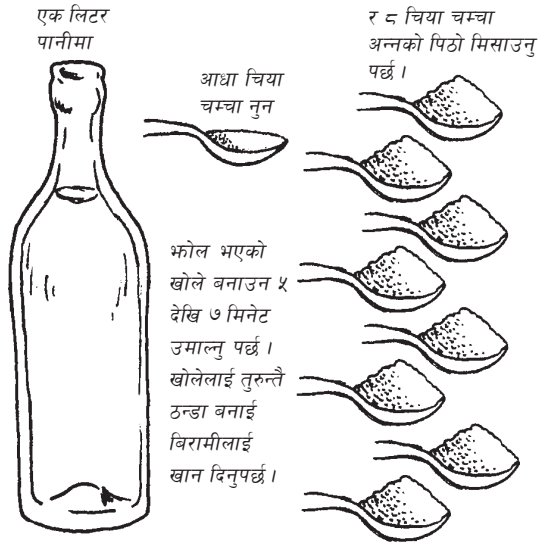 एक लिटर
पानीमा
आधा चिया
चम्चा नुन
र ८ चिया चम्चा
अन्नको पिठो मिसाउनु
पर्छ ।
झोल भएको
खोले बनाउन ५
देखि ७ मिनेट
उमाल्नु पर्छ ।
खोलेलाई तुरुन्तै
ठन्डा बनाई
बिरामीलाई
खान दिनुपर्छ ।